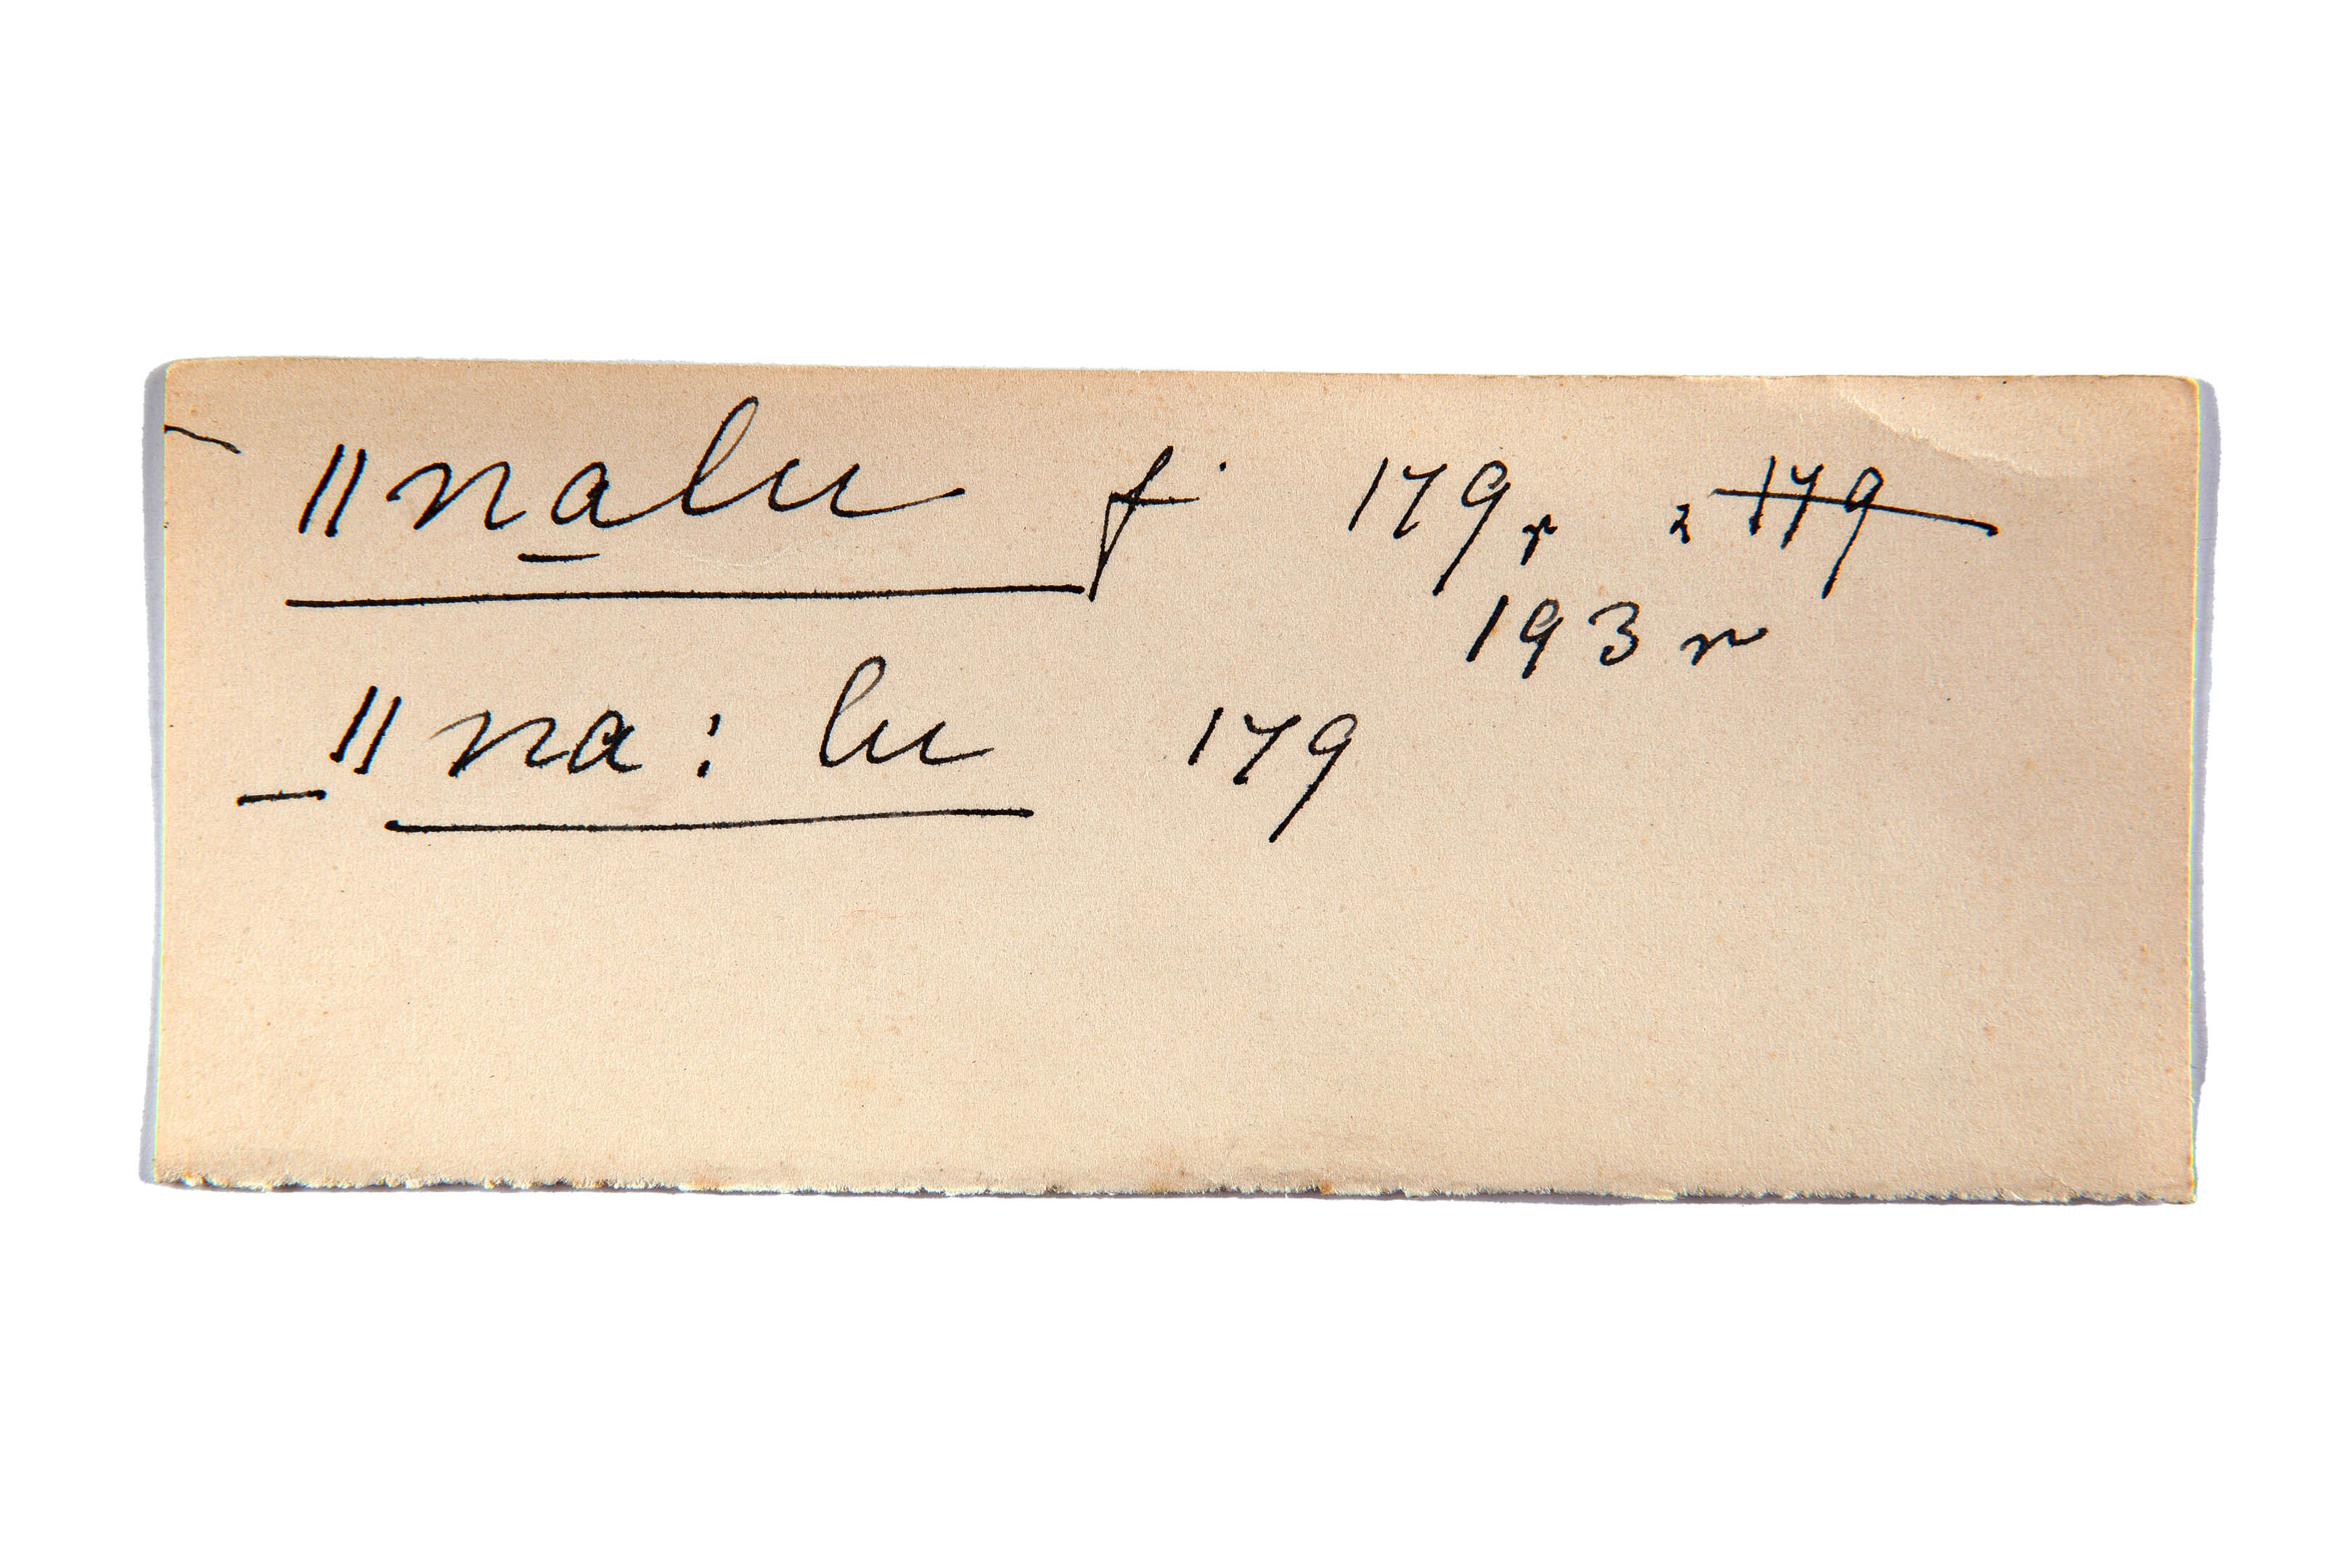 ǁna̱bu f. 179r r ~~179~~
193 r
ǁna: bu 179